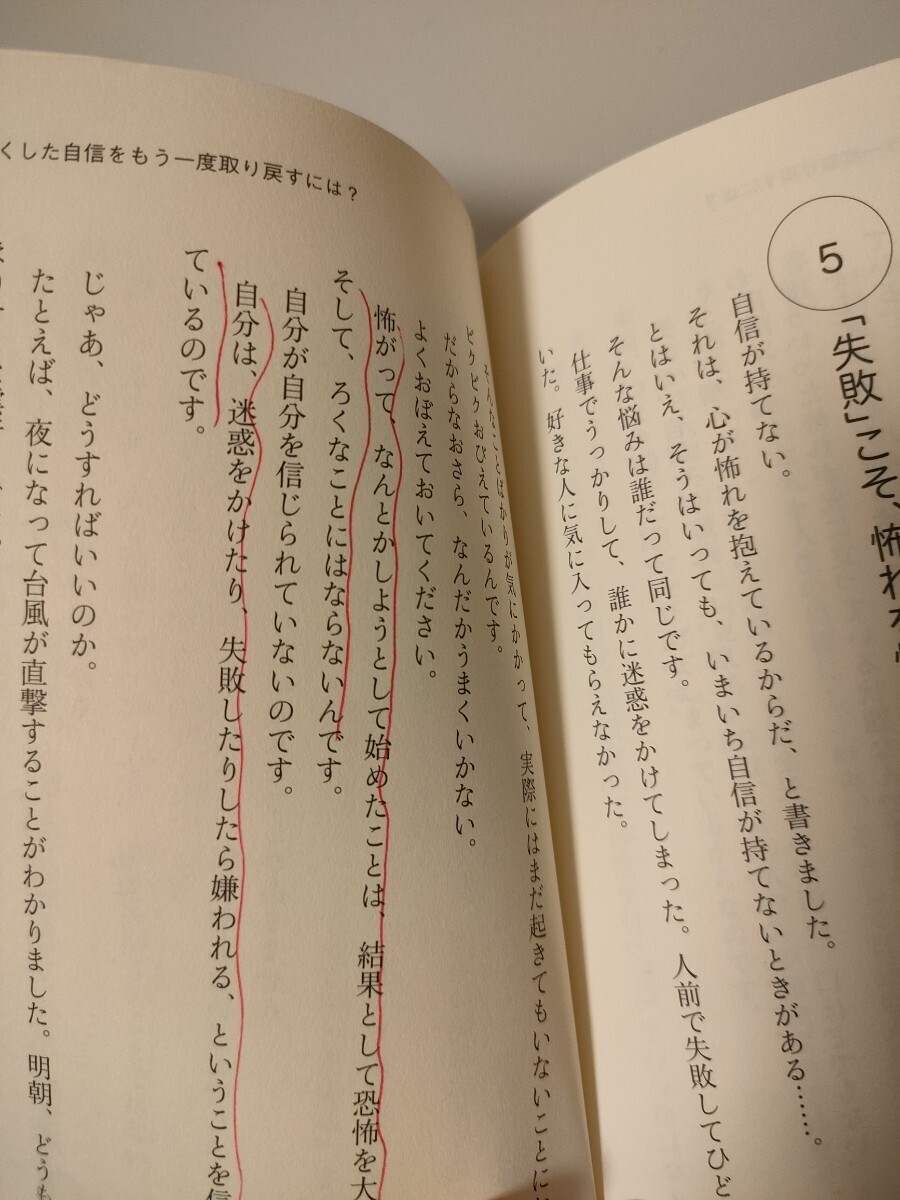 5
「失敗」こそ、怖れ
自信が持てない。
それは、心が怖れを抱えているからだ、と書きました。
とはいえ、そうはいっても、いまいち自信が持てないときがある……。
そんな悩みは誰だって同じです。
仕事でうっかりして、誰かに迷惑をかけてしまった。人前で失敗してひど
いた。好きな人に気に入ってもらえなかった。
くした自信をもう一度取り戻すには？
そんなことばかりが気にかかって、実際にはまだ起きてもいないことに
ビクビクおびえているんです。
だからなおさら、なんだかうまくいかない。
よくおぼえておいてください。
怖がって、なんとかしようとして始めたことは、結果として恐怖を大
そして、ろくなことにはならないんです。
自分が自分を信じられていないのです。
自分は、迷惑をかけたり、失敗したりしたら嫌われる、ということを信
ているのです。
じゃあ、どうすればいいのか。
たとえば、夜になって台風が直撃することがわかりました。明朝、どうも